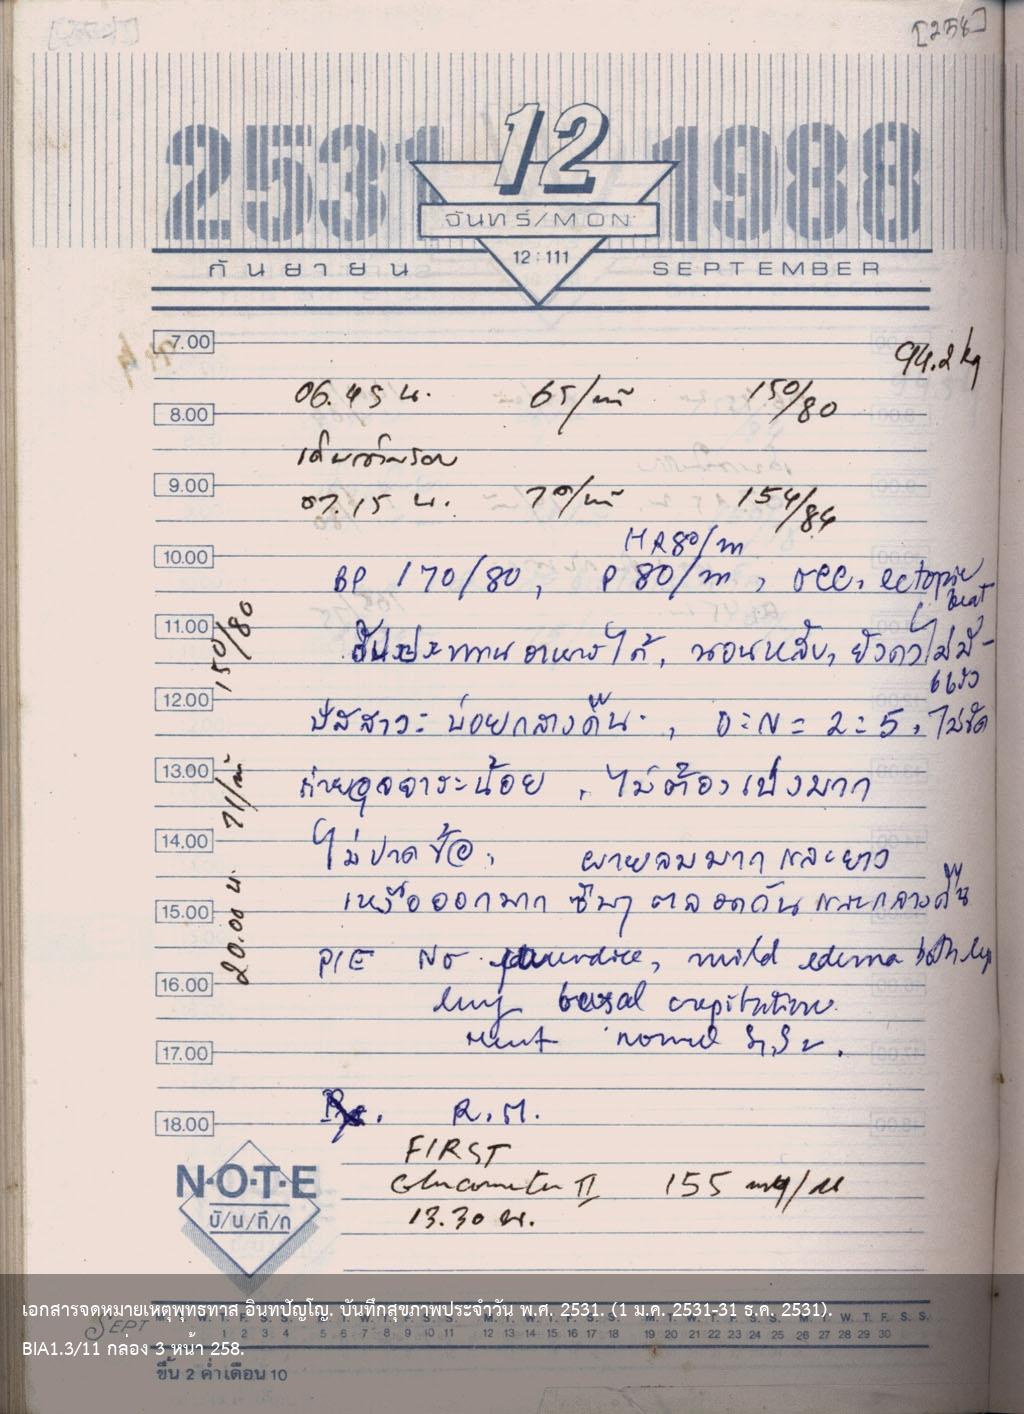 [258]
2531 12 1988
จันทร์/MON
12:111
กันยายน SEPTEMBER
7.00
94.2 kg
06.45 น. 65/นาที 150/80
8.00
9.00
07.15 น. 70/นาที 154/84
HR 80/m
10.00
BP 170/80, P 80/m, occ. ectopic beat
11.00
รับประทานอาหารได้, นอนหลับ, ยังคงไม่มีแรง
12.00
ปัสสาวะบ่อยกลางคืน, D:N = 2:5, ไม่ขัด
13.00
ถ่ายอุจจาระน้อย, ไม่ต้องเบ่งมาก
14.00
ไม่ปวดข้อ, ผายลมมากและยาว
เหงื่อออกมาก ซึมๆ ตลอดวันและกลางคืน
15.00
P/E No jaundice, mild edema both legs
16.00
lung basal crepitation
heart normal S1, S2.
17.00
18.00
R.M.
FIRST
Glucometer II 155 mg/dl
13.30 น.
20.00 น. 71/นาที 150/80
N·O·T·E
บั/น/ทึ/ก
เอกสารจดหมายเหตุพุทธทาส อินทปัญโญ. บันทึกสุขภาพประจำวัน พ.ศ. 2531. (1 ม.ค. 2531-31 ธ.ค. 2531).
SEPT M. T. W. T. F. S. S. M. T. W. T. F. S. S. M. T. W. T. F. S. S. M. T. W. T. F. S. S. M. T. W. T. F. S. S.
1 2 3 4 5 6 7 8 9 10 11 12 13 14 15 16 17 18 19 20 21 22 23 24 25 26 27 28 29 30
BIA1.3/11 กล่อง 3 หน้า 258.
ขึ้น 2 ค่ำ เดือน 10